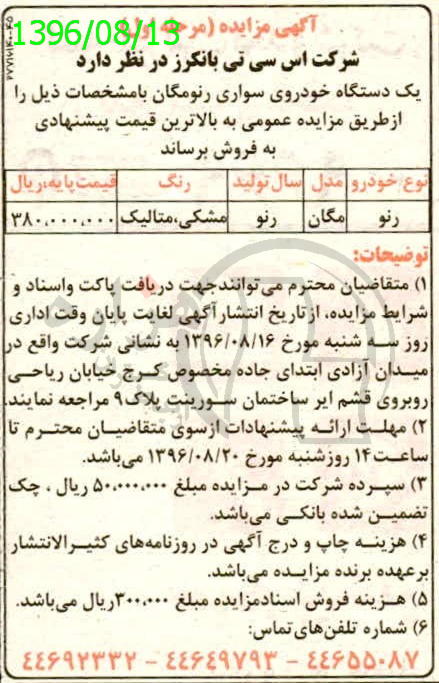 1396/08/13
آگهی مزایده (مرحله اول)
شرکت اس سی تی بانکرز در نظر دارد
یک دستگاه خودروی سواری رنومگان بامشخصات ذیل را
ازطریق مزایده عمومی به بالاترین قیمت پیشنهادی
به فروش برساند
نوع خودرو مدل سال تولید رنگ قیمت پایه،ریال
رنو مگان رنو مشکی،متالیک ۳۸۰،۰۰۰،۰۰۰
توضیحات:
۱) متقاضیان محترم می‌توانندجهت دریافت پاکت واسناد و
شرایط مزایده، ازتاریخ انتشارآگهی لغایت پایان وقت اداری
روز سه شنبه مورخ ۱۳۹۶/۰۸/۱۶ به نشانی شرکت واقع در
میدان آزادی ابتدای جاده مخصوص کرج خیابان ریاحی
روبروی قشم ایر ساختمان سورینت پلاک۹ مراجعه نمایند.
۲) مهلت ارائه پیشنهادات ازسوی متقاضیان محترم تا
ساعت۱۴ روزشنبه مورخ ۱۳۹۶/۰۸/۲۰ می‌باشد.
۳) سپرده شرکت در مزایده مبلغ ۵۰،۰۰۰،۰۰۰ ریال ، چک
تضمین شده بانکی می‌باشد.
۴) هزینه چاپ و درج آگهی در روزنامه‌های کثیرالانتشار
برعهده برنده مزایده می‌باشد.
۵) هزینه فروش اسنادمزایده مبلغ ۳۰۰،۰۰۰ریال می‌باشد.
۶) شماره تلفن‌های‌تماس:
۴۴۶۵۵۰۸۷ - ۴۴۶۴۹۷۹۳ - ۴۴۶۹۲۳۳۲